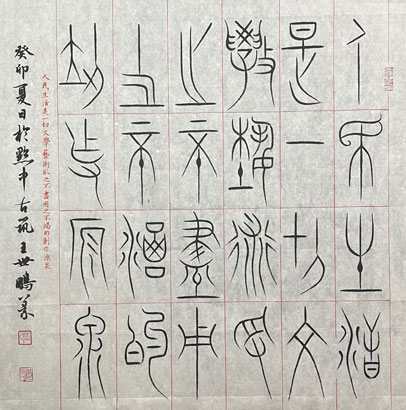 人民生活
是一切文
學藝術取
之不盡用
之不竭的
創作源泉
人民生活是一切文學藝術取之不盡用之不竭的創作源泉
癸卯夏日於黔中古筑王世鵬篆